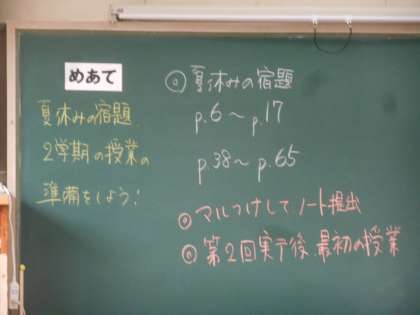 めあて
夏休みの宿題
2学期の授業の
準備をしよう!
◎夏休みの宿題
p.6〜p.17
p.38〜p.65
◎マルつけしてノート提出
◎第2回実テ後、最初の授業